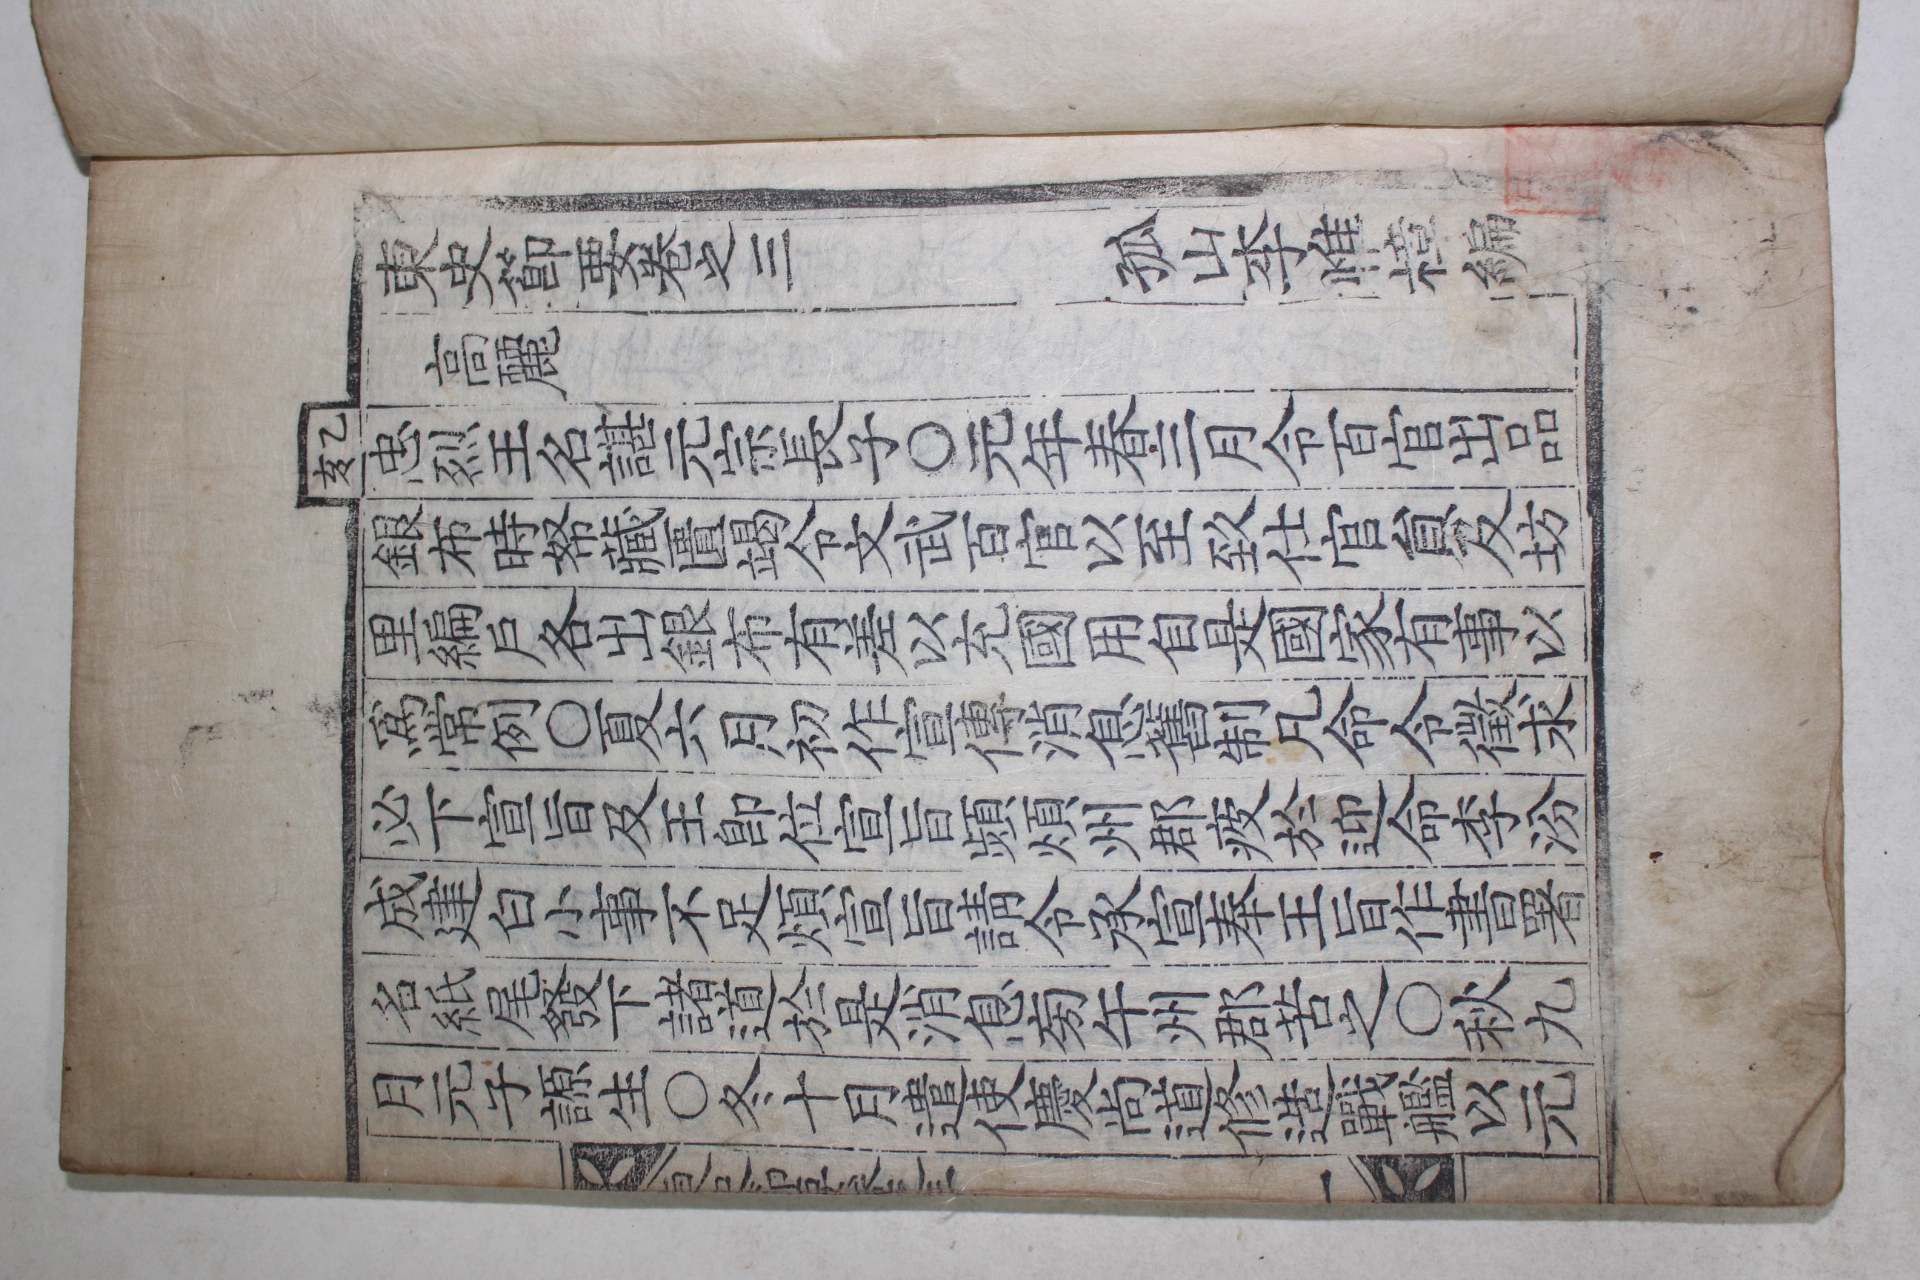 東史節要卷之三 孤山李惟樟編
高麗
乙亥
忠烈王名諶元宗長子○元年春三月令百官出品
銀布時帑藏匱竭令文武百官以至致仕官員及坊
里編戶各出銀布有差以充國用自是國家有事以
爲常例○夏六月初作宣傳消息舊制凡命令徵求
必下宣旨及王卽位宣旨頻煩州郡疲於迎命李汾
成建白小事不足煩宣旨請令承宣奉王旨作書署
名紙尾發下諸道於是消息旁午州郡苦之○秋九
月元子謜生○冬十月遣使慶尚道修造戰艦以元